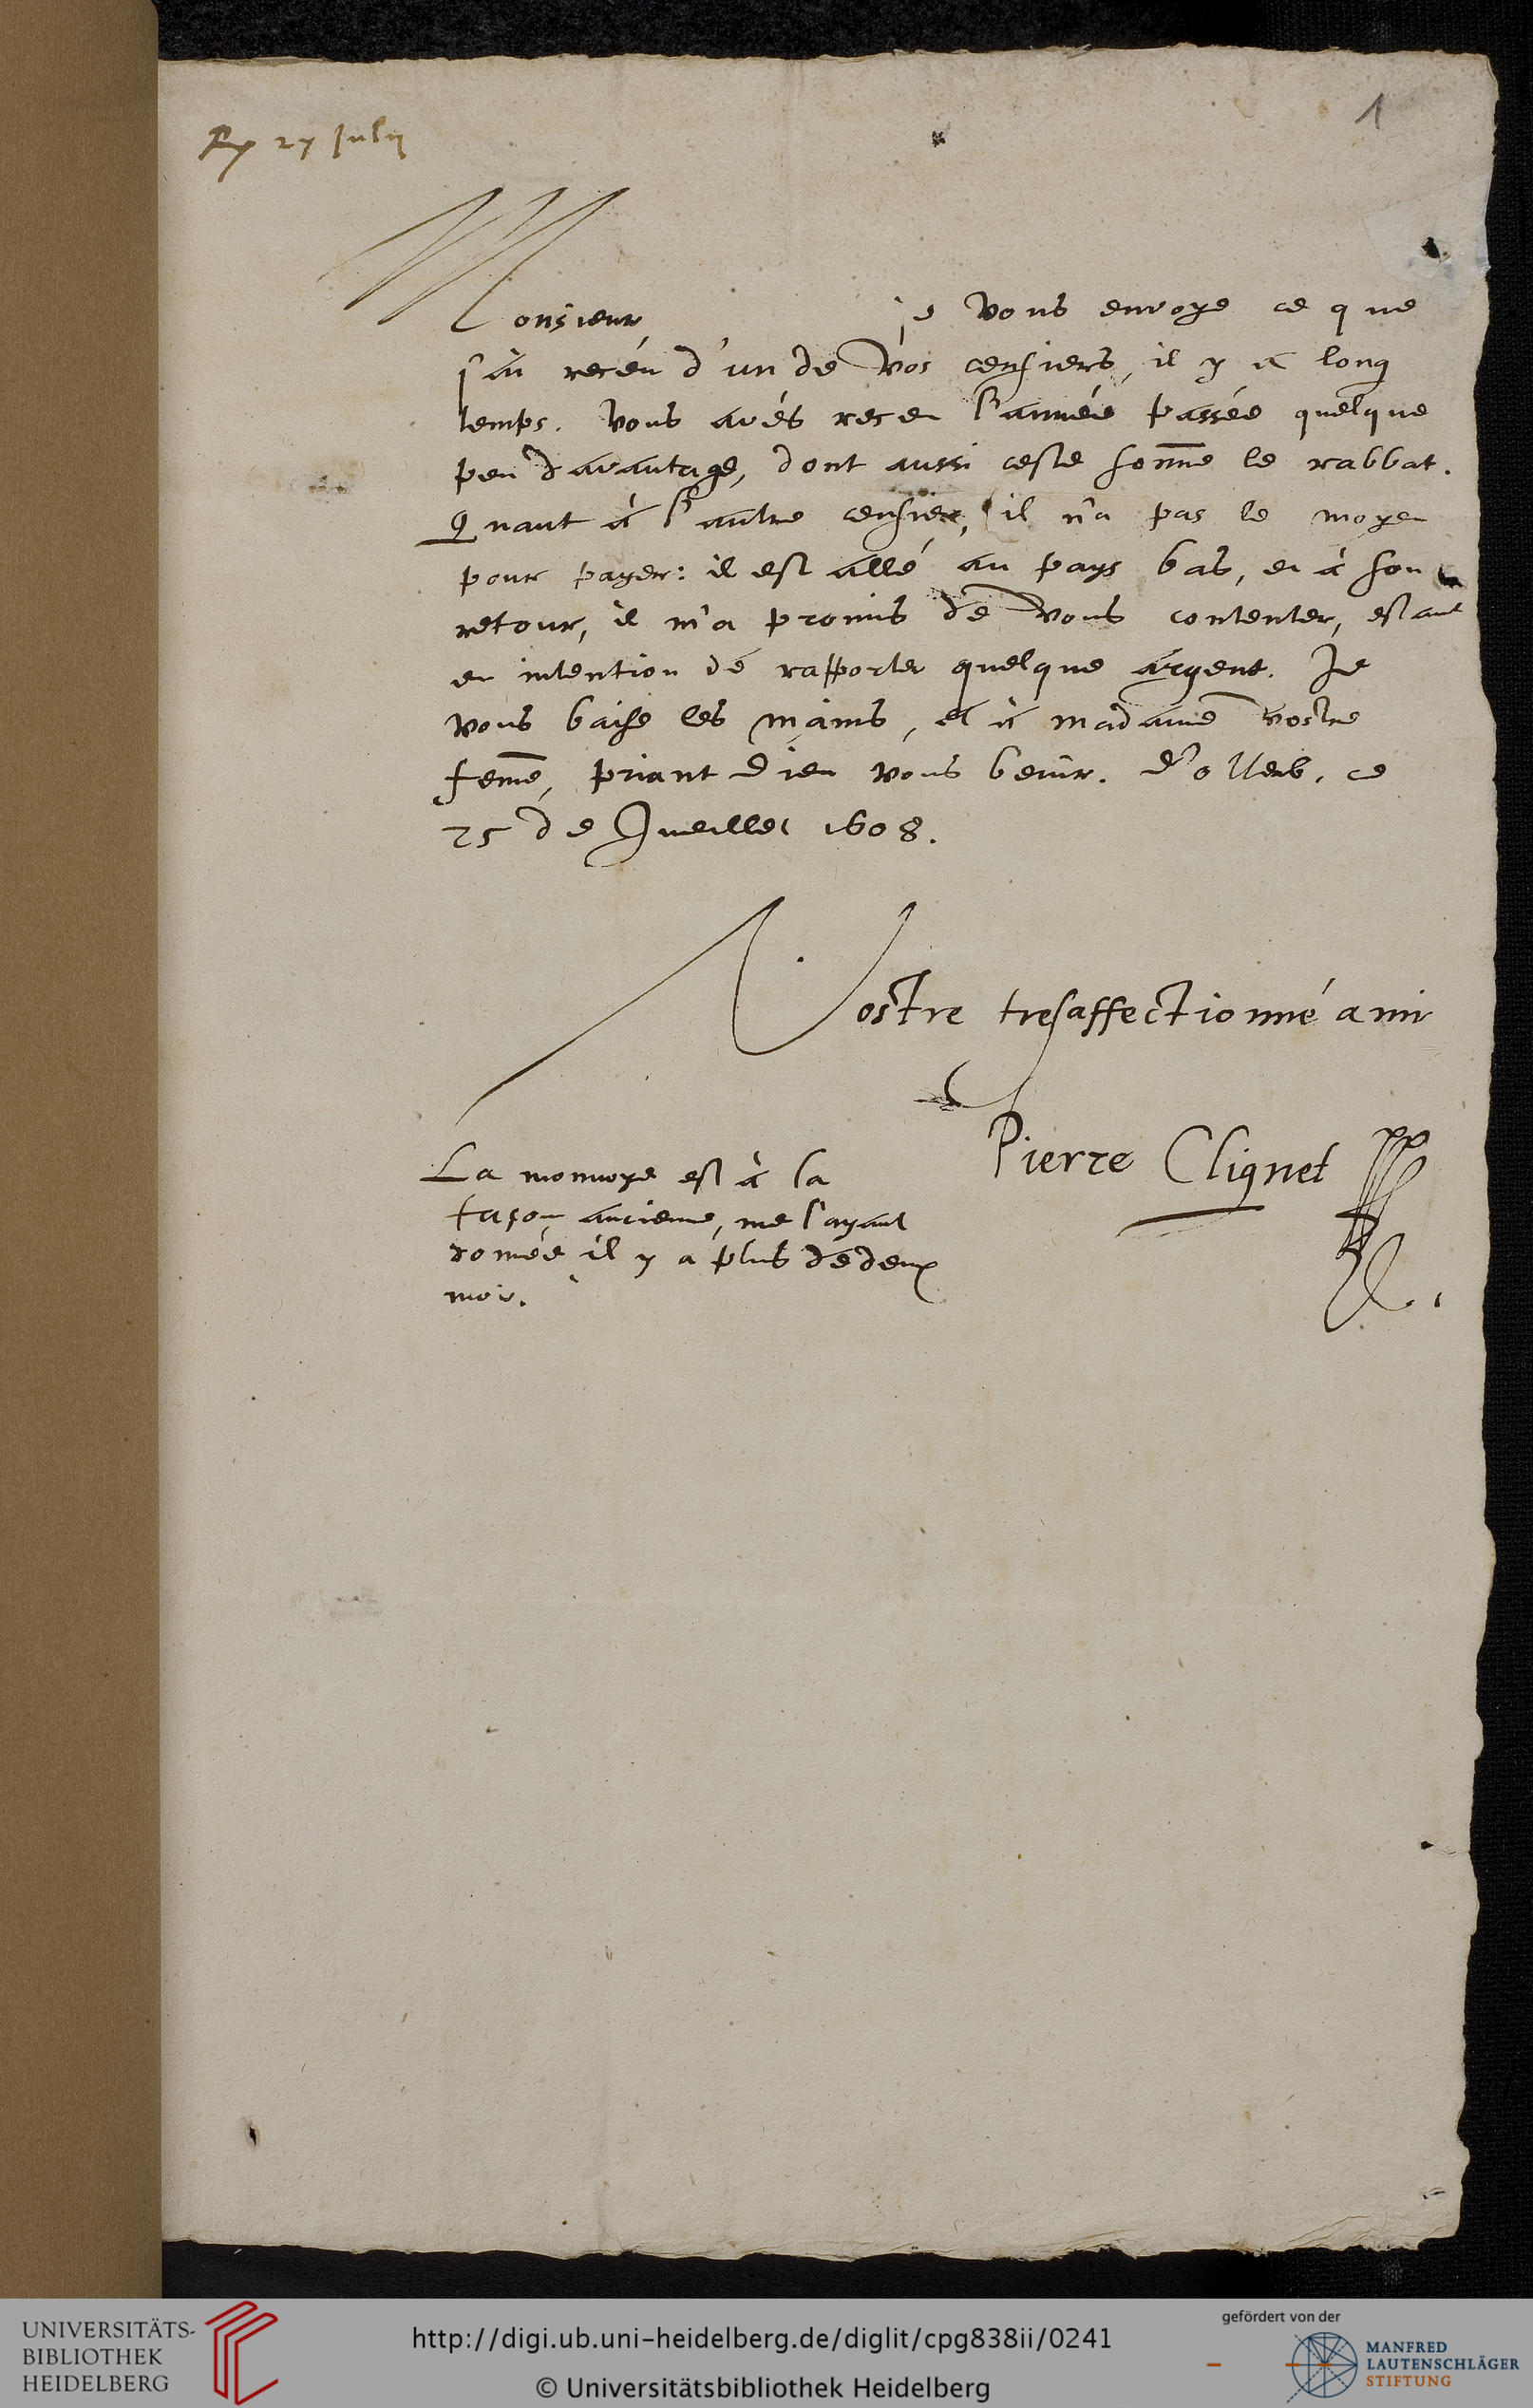 1
27 Julij
Monsieur je vous envoye ce que
j'ai reçeu d'un de vos censiers, il y a long
temps. Vous avés receu l'année passée quelque
peu davantage, dont aussi ceste som̄e le rabbat.
Quant à l'autre censier, il n'a pas le moyen
pour payer: il est allé au pays bas, et à son
retour, il m'a promis de vous contenter, estant
en intention de rapporter quelque argent. Je
vous baise les mains, et à madame vostre
fem̄e, priant Dieu vous benir. D'otterb. ce
25 de Jueillet 1608.
Vostre tresaffectionné ami
Pierre Clignet
La monnoye est à la
façon ancienne, me l'ayant
donnée il y a plus de deux
mois.
UNIVERSITÄTS-
BIBLIOTHEK
HEIDELBERG
http://digi.ub.uni-heidelberg.de/diglit/cpg838ii/0241
© Universitätsbibliothek Heidelberg
gefördert von der
MANFRED
LAUTENSCHLÄGER
STIFTUNG